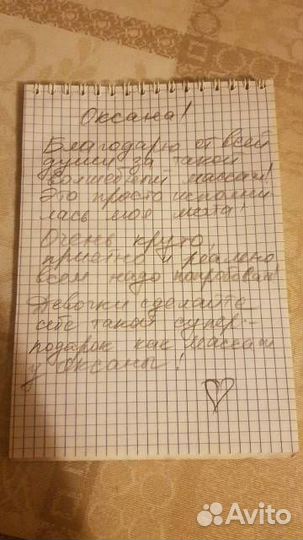 Оксана!
Благодарю от всей
души за такой
волшебный массаж!
Это просто исполни
лась моя мечта!
Очень круто,
приятно и реально
всем надо попробовать!
Девочки сделайте
себе такой супер-
подарок как массаж
у Оксаны!
Avito